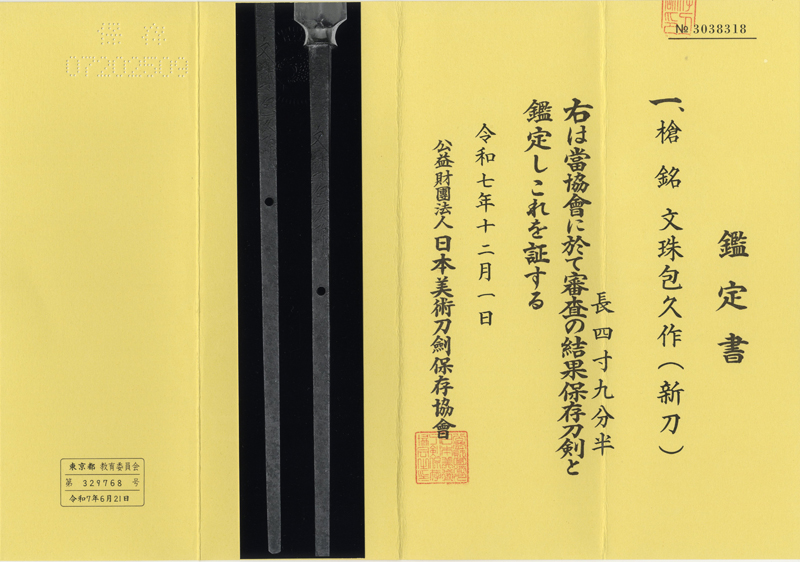 № 3038318
鑑定書
一、槍 銘 文珠包久作(新刀)
長四寸九分半
右は當協會に於て審査の結果保存刀剣と
鑑定しこれを証する
令和七年十二月一日
公益財團法人 日本美術刀劍保存協會
保存
07202509
東京都 教育委員会
第 329768 号
令和7年6月21日